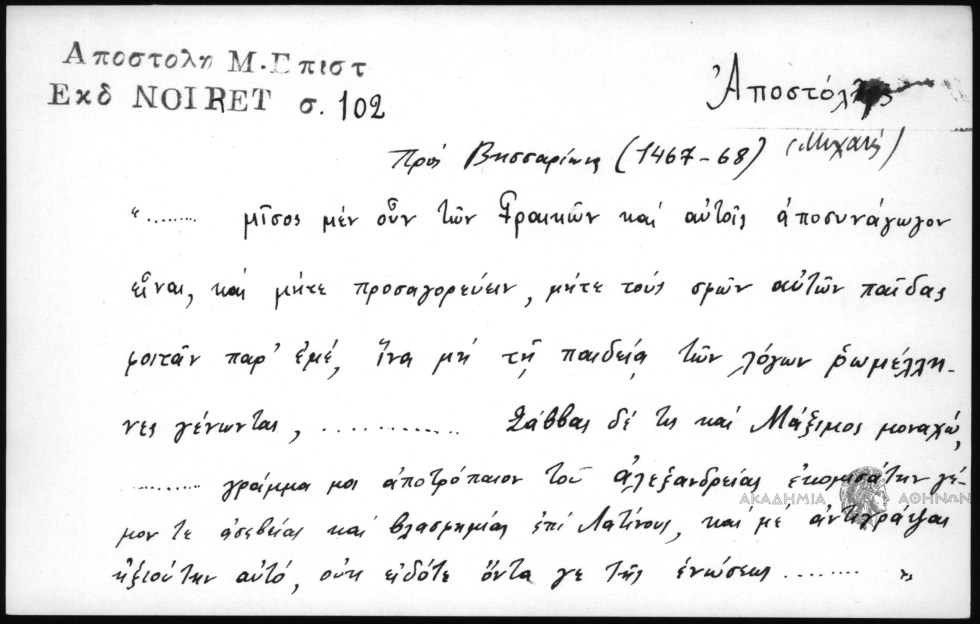 Αποστολη Μ. Επιστ
Εκδ NOIRET σ. 102
Ἀποστόλης
(Μιχαήλ)
Πρός Βησσαρίωνα (1467-68)
"......... μῖσος μέν οὖν τῶν Γραικῶν καί αὐτοῖς ἀποσυνάγωγον
εἶναι, καί μήτε προσαγορεύειν, μήτε τούς σφῶν αὐτῶν παῖδας
φοιτᾶν παρ' ἐμέ, ἵνα μή τῇ παιδείᾳ τῶν λόγων ῥωμέλλη-
νες γένωνται, ............. Σάββας δέ τις καί Μάξιμος μοναχώ,
......... γράμμα μοι ἀποτρόπαιον τοῦ Ἀλεξανδρείας ἐκομισάτην γέ-
μον τε ἀσεβείας καί βλασφημίας ἐπί Λατίνους, καί με ἀντιγράψαι
ἠξιούτην αὐτό, οὐκ εἰδότε ὄντα γε τῆς ἑνώσεως ........ "
ΑΚΑΔΗΜΙΑ ΑΘΗΝΩΝ